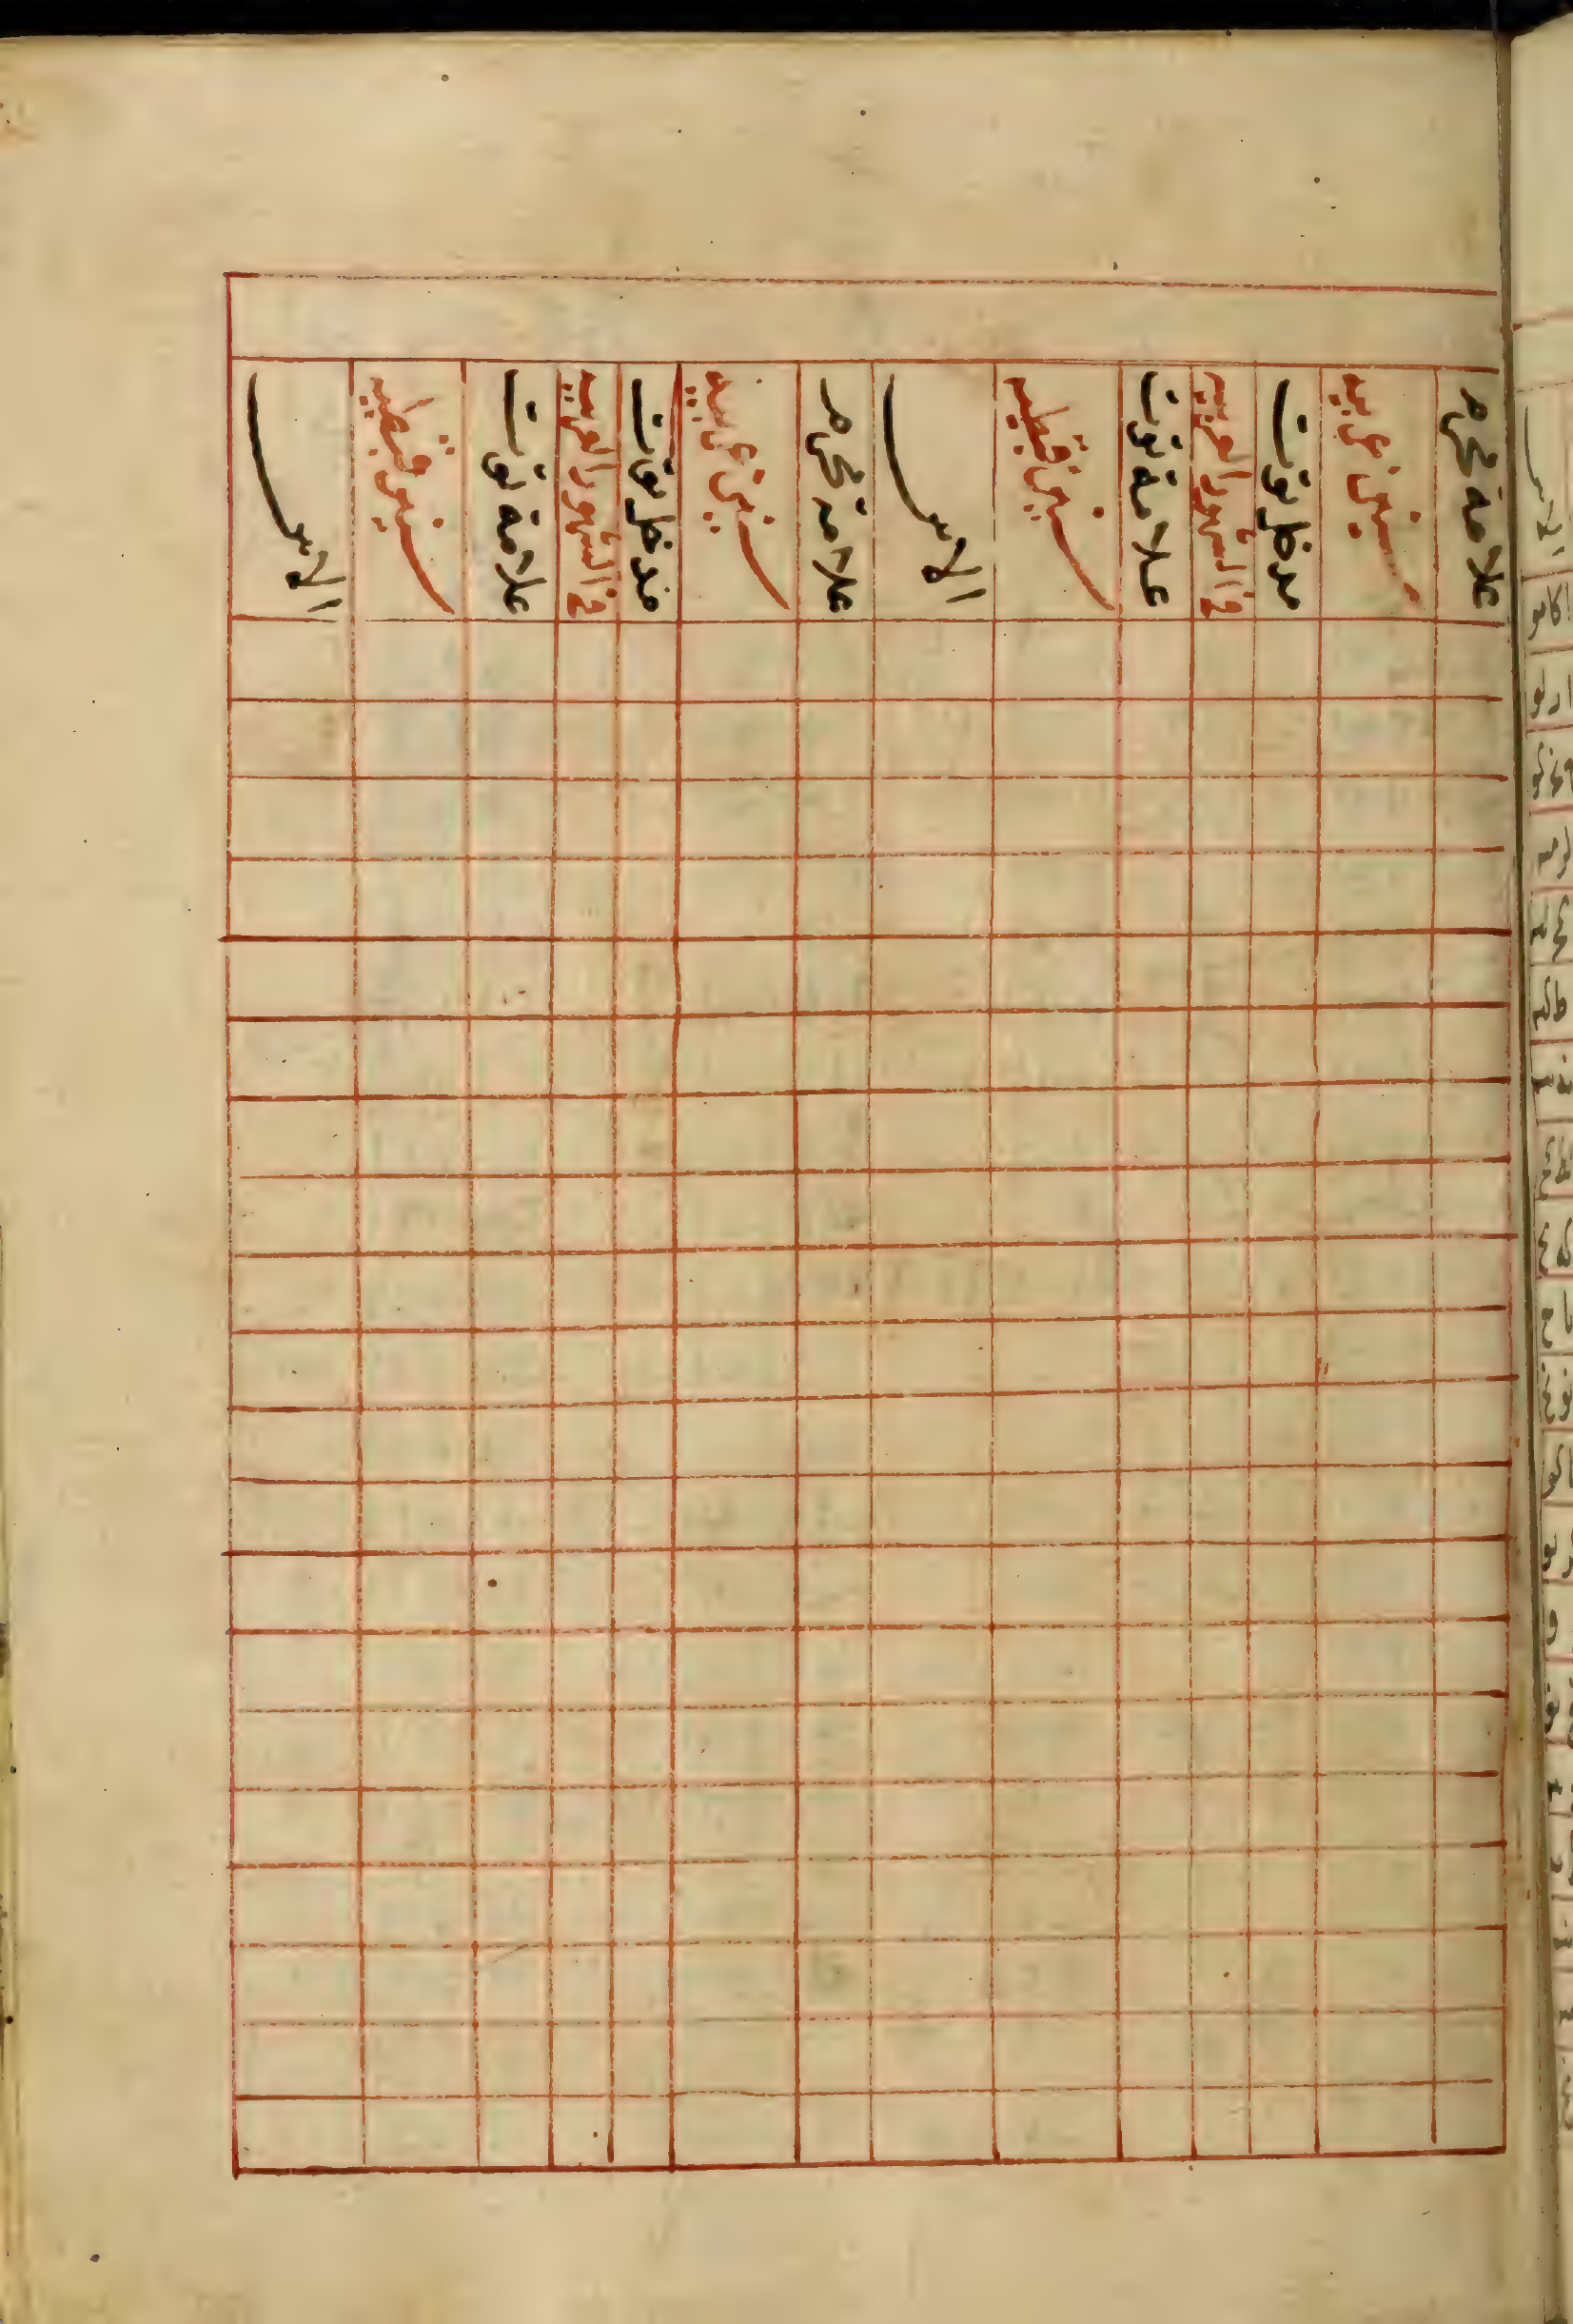 علامة محرم
سنين عربيه
مدخل توت
في الشهور العربيه
علامة توت
سنين قبطيه
الاس
علامة محرم
سنين عربيه
مدخل توت
في الشهور العربيه
علامة توت
سنين قبطيه
الاس